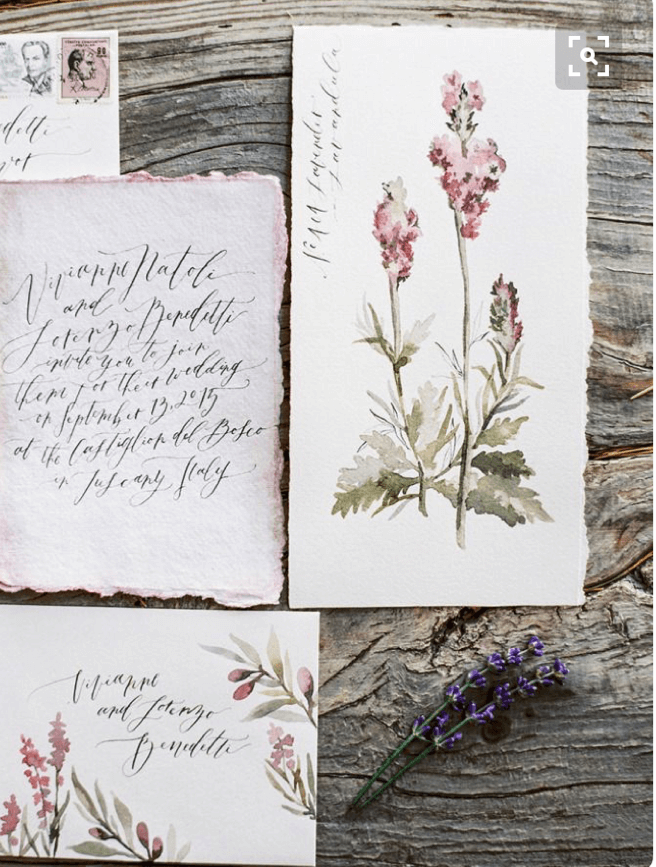 Vivianne Natoli
and
Lorenzo Benedetti
invite you to join
them for their wedding
on September 13, 2015
at the Castiglion del Bosco
in Tuscany Italy
Lavender
Lavandula
Vivianne
and Lorenzo
Benedetti